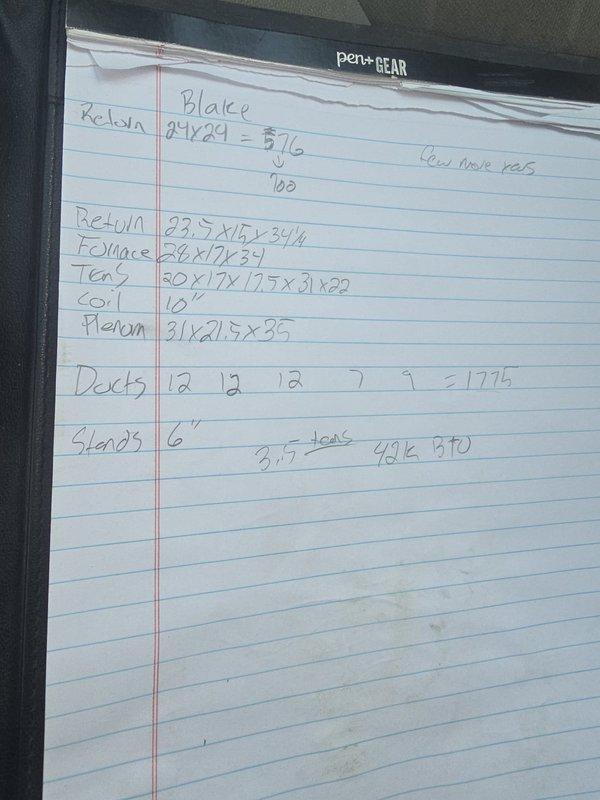 pen+ GEAR
Blake
Return 24x24 = 576
few more years
↓
700
Return 23.5x15x34 1/4
Furnace 28x17x34
Tens 20x17x17.5x31x22
Coil 10"
Plenum 31x21.5x35
Ducts 12 12 12 7 9 = 1775
Stands 6"
3.5 tons 42k Btu